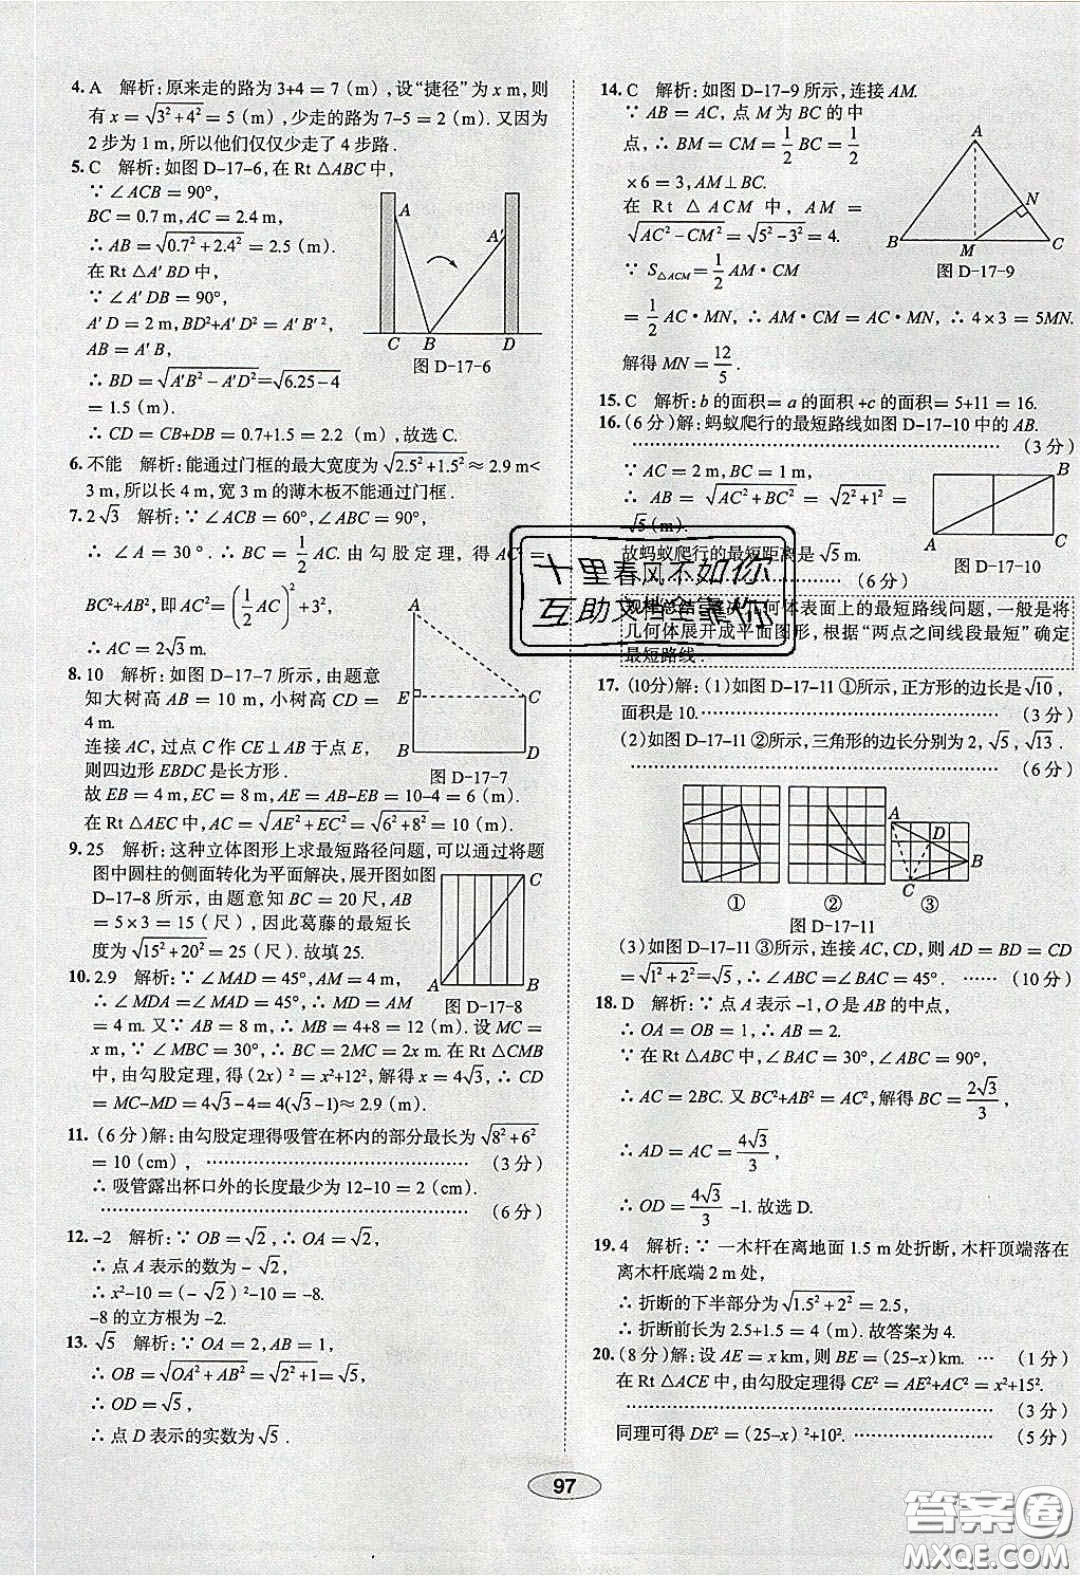 4. A 解析:原来走的路为 3+4 = 7 (m),设“捷径”为 x m,则
有 x = √(3²+4²) = 5 (m),少走的路为 7-5 = 2 (m). 又因为
2 步为 1 m,所以他们仅仅少走了 4 步路.
5. C 解析:如图 D-17-6,在 Rt △ABC 中,
∵ ∠ACB = 90°,
BC = 0.7 m, AC = 2.4 m,
∴ AB = √(0.7²+2.4²) = 2.5 (m).
在 Rt △A′BD 中,
∵ ∠A′DB = 90°,
A′D = 2 m, BD²+A′D² = A′B′²,
AB = A′B,
∴ BD = √(A′B²-A′D²) = √(6.25-4)
= 1.5 (m).
∴ CD = CB+DB = 0.7+1.5 = 2.2 (m),故选 C.
A A′ C B D
图 D-17-6
6. 不能 解析:能通过门框的最大宽度为 √(2.5²+1.5²) ≈ 2.9 m<
3 m,所以长 4 m,宽 3 m 的薄木板不能通过门框.
7. 2√3 解析:∵ ∠ACB = 60°, ∠ABC = 90°,
∴ ∠A = 30°. ∴ BC = 1/2 AC. 由勾股定理,得 AC² =
BC²+AB²,即 AC² = (1/2 AC)²+3²,
∴ AC = 2√3 m.
8. 10 解析:如图 D-17-7 所示,由题意
知大树高 AB = 10 m,小树高 CD =
4 m.
连接 AC,过点 C 作 CE⊥AB 于点 E,
则四边形 EBDC 是长方形.
A E C B D
图 D-17-7
故 EB = 4 m, EC = 8 m, AE = AB-EB = 10-4 = 6 (m).
在 Rt △AEC 中, AC = √(AE²+EC²) = √(6²+8²) = 10 (m).
9. 25 解析:这种立体图形上求最短路径问题,可以通过将题
图中圆柱的侧面转化为平面解决,展开图如图
D-17-8 所示,由题意知 BC = 20 尺, AB
= 5×3 = 15 (尺),因此葛藤的最短长
度为 √(15²+20²) = 25 (尺). 故填 25.
C A B
图 D-17-8
10. 2.9 解析:∵ ∠MAD = 45°, AM = 4 m,
∴ ∠MDA = ∠MAD = 45°, ∴ MD = AM
= 4 m. 又∵ AB = 8 m, ∴ MB = 4+8 = 12 (m). 设 MC =
x m, ∵ ∠MBC = 30°, ∴ BC = 2MC = 2x m. 在 Rt △CMB
中,由勾股定理,得 (2x)² = x²+12²,解得 x = 4√3, ∴ CD
= MC-MD = 4√3-4 = 4(√3-1) ≈ 2.9 (m).
11. (6 分)解:由勾股定理得吸管在杯内的部分最长为 √(8²+6²)
= 10 (cm), …… (3 分)
∴ 吸管露出杯口外的长度最少为 12-10 = 2 (cm).
…… (6 分)
12. -2 解析:∵ OB = √2, ∴ OA = √2,
∴ 点 A 表示的数为 -√2,
∴ x²-10 = (-√2)²-10 = -8.
-8 的立方根为 -2.
13. √5 解析:∵ OA = 2, AB = 1,
∴ OB = √(OA²+AB²) = √(2²+1) = √5,
∴ OD = √5,
∴ 点 D 表示的实数为 √5.
14. C 解析:如图 D-17-9 所示,连接 AM.
∵ AB = AC,点 M 为 BC 的中
点, ∴ BM = CM = 1/2 BC = 1/2
×6 = 3, AM⊥BC.
在 Rt △ACM 中, AM =
√(AC²-CM²) = √(5²-3²) = 4.
∵ S△ACM = 1/2 AM·CM
A N B M C
图 D-17-9
= 1/2 AC·MN, ∴ AM·CM = AC·MN, ∴ 4×3 = 5MN.
解得 MN = 12/5.
15. C 解析:b 的面积= a 的面积 +c 的面积 = 5+11 = 16.
16. (6 分)解:蚂蚁爬行的最短路线如图 D-17-10 中的 AB.
…… (3 分)
∵ AC = 2 m, BC = 1 m,
∴ AB = √(AC²+BC²) = √(2²+1²) =
√5 (m).
故蚂蚁爬行的最短距离是 √5 m.
…… (6 分)
B A C
图 D-17-10
规律总结:解决几何体表面上的最短路线问题,一般是将
几何体展开成平面图形,根据“两点之间线段最短”确定
最短路线.
十里春风不如你
互助文档全靠你
17. (10分)解:(1)如图 D-17-11 ①所示,正方形的边长是 √10,
面积是 10. …… (3 分)
(2)如图 D-17-11 ②所示,三角形的边长分别为 2, √5, √13.
…… (6 分)
A D B C
① ② ③
图 D-17-11
(3)如图 D-17-11 ③所示,连接 AC, CD,则 AD = BD = CD
= √(1²+2²) = √5, ∴ ∠ABC = ∠BAC = 45°. …… (10 分)
18. D 解析:∵ 点 A 表示 -1, O 是 AB 的中点,
∴ OA = OB = 1, ∴ AB = 2.
∵ 在 Rt △ABC 中, ∠BAC = 30°, ∠ABC = 90°,
∴ AC = 2BC. 又 BC²+AB² = AC²,解得 BC = 2√3/3,
∴ AD = AC = 4√3/3,
∴ OD = 4√3/3 -1. 故选 D.
19. 4 解析:∵ 一木杆在离地面 1.5 m 处折断,木杆顶端落在
离木杆底端 2 m 处,
∴ 折断的下半部分为 √(1.5²+2²) = 2.5,
∴ 折断前长为 2.5+1.5 = 4 (m). 故答案为 4.
20. (8 分)解:设 AE = x km,则 BE = (25-x)km. … (1 分)
在 Rt △ACE 中,由勾股定理得 CE² = AE²+AC² = x²+15².
…… (3 分)
同理可得 DE² = (25-x)²+10². …… (5 分)
97
答案圈
MXQE.COM